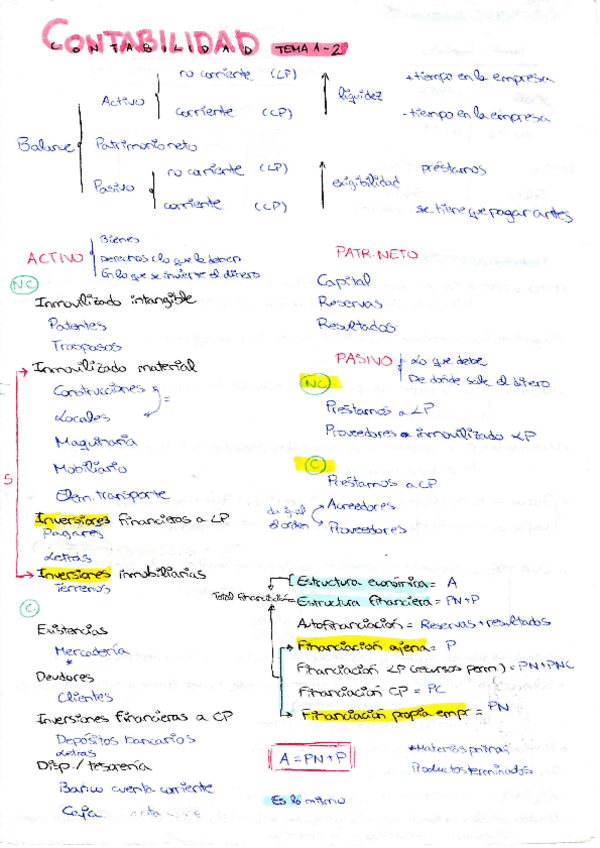 CONTABILIDAD TEMA 1-2
no corriente (LP)
+ tiempo en la empresa
Activo
liquidez
corriente (CP)
- tiempo en la empresa
Balance
Patrimonio neto
no corriente (LP)
préstamos
Pasivo
exigibilidad
corriente (CP)
se tiene que pagar antes
ACTIVO
Bienes
Derechos (lo que le deben
En lo que se invierte el dinero
NC
Inmovilizado intangible
Patentes
Traspasos
Inmovilizado material
Construcciones
=
Locales
Maquinaria
Mobiliario
Elem. transporte
S
Inversiones financieras a LP
Pagarés
Letras
Inversiones inmobiliarias
Terrenos
C
Existencias
Mercadería
*
Deudores
Clientes
Inversiones financieras a CP
Depósitos bancarios
Letras
Disp./tesorería
Banco cuenta corriente
Caja
PATR. NETO
Capital
Reservas
Resultados
PASIVO
Lo que debe
De donde sale el dinero
NC
Préstamos a LP
Proveedores inmovilizado LP
C
Préstamos a CP
da igual el orden
Acreedores
Proveedores
Estructura económica = A
Total financiación = Estructura financiera = PN+P
Autofinanciación = Reservas + resultados
Financiación ajena = P
Financiación LP (recursos perm) = PN+PNC
Financiación CP = PC
Financiación propia empr = PN
A = PN + P
*Materias primas
Productos terminados
Es lo mismo